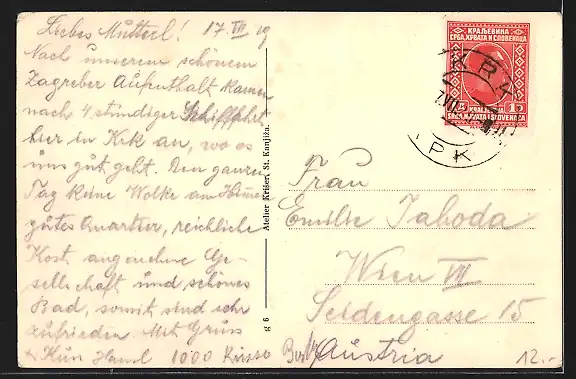 Liebes Mutterl! 17. VII 29
Nach unserem schönen
Zagreber Aufenthalt kamen
nach 4 stündiger Schiffahrt
hier in Krk an, wo es
uns gut geht. Den ganzen
Tag keine Wolke am Himmel
gutes Quartier, reichliche
Kost, angenehme Ge-
sellschaft und schönes
Bad, somit sind sehr
zufrieden. Mit Gruss
1000 Küsse
Atelier Krizer, St. Kanjiža.
g 6
КРАЉЕВИНА
СРБА, ХРВАТА И СЛОВЕНАЦА
1
KRALJEVINA
SRBA, HRVATA I SLOVENACA
KRK
КРК
Frau
Emilie Jahoda
Wien VII
Seidengasse 15
Austria
12.-